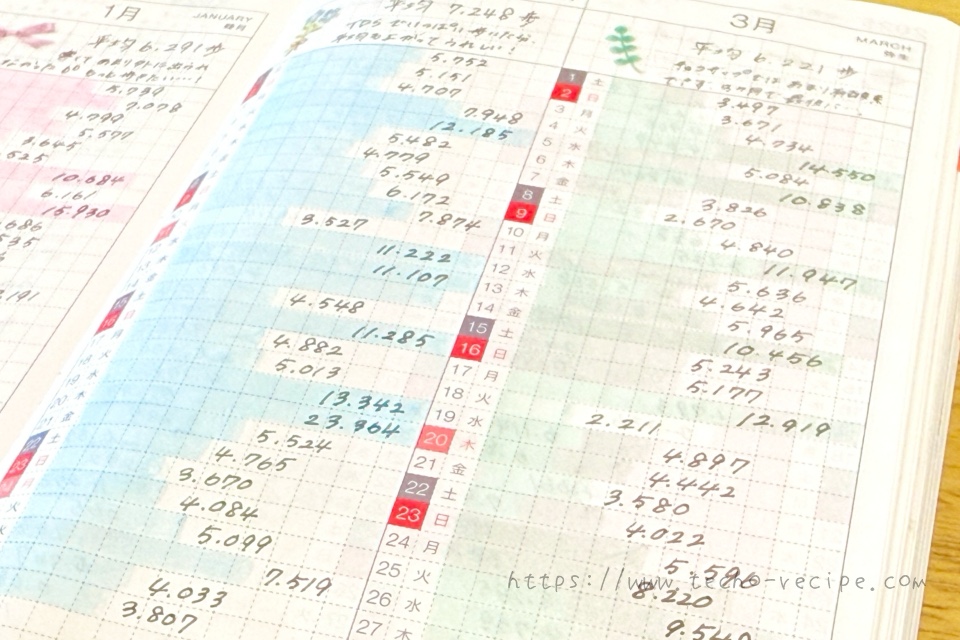 1月
JANUARY
睦月
平均 6.291歩
5.739
7.078
4.799
5.577
3.645
.525
10.684
6.16
15.930
.686
535
平均 7.248歩
5.752
5.151
4.707
7.948
12.185
5.482
4.779
5.549
6.172
7.874
3.527
11.222
11.107
4.548
11.285
4.882
5.013
13.342
23.964
5.524
4.765
3.670
4.084
5.099
7.519
4.033
3.807
3月
MARCH
弥生
平均 6.221歩
1 土
2 日
3 月
4 火
5 水
6 木
7 金
8 土
9 日
10 月
11 火
12 水
13 木
14 金
15 土
16 日
17 月
18 火
19 水
20 木
21 金
22 土
23 日
24 月
25 火
26 水
27 木
3.497
3.671
4.734
14.550
5.084
10.838
3.826
2.670
4.840
11.947
5.636
4.642
5.965
10.456
5.243
5.177
12.919
2.211
4.897
4.442
3.580
4.022
5.596
8.220
9.540
https://www.techo-recipe.com